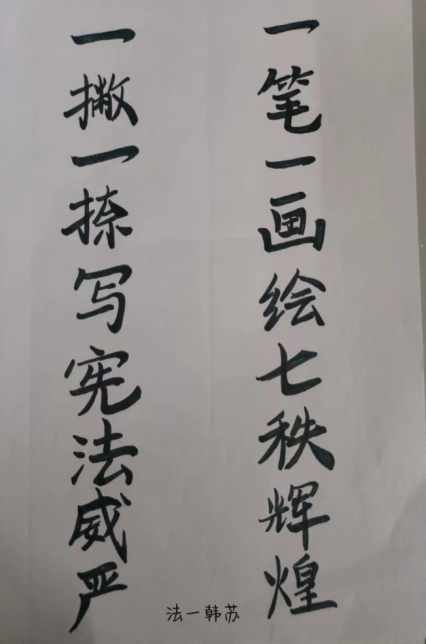 一笔一画绘七秩辉煌
一撇一捺写宪法威严
法一韩苏